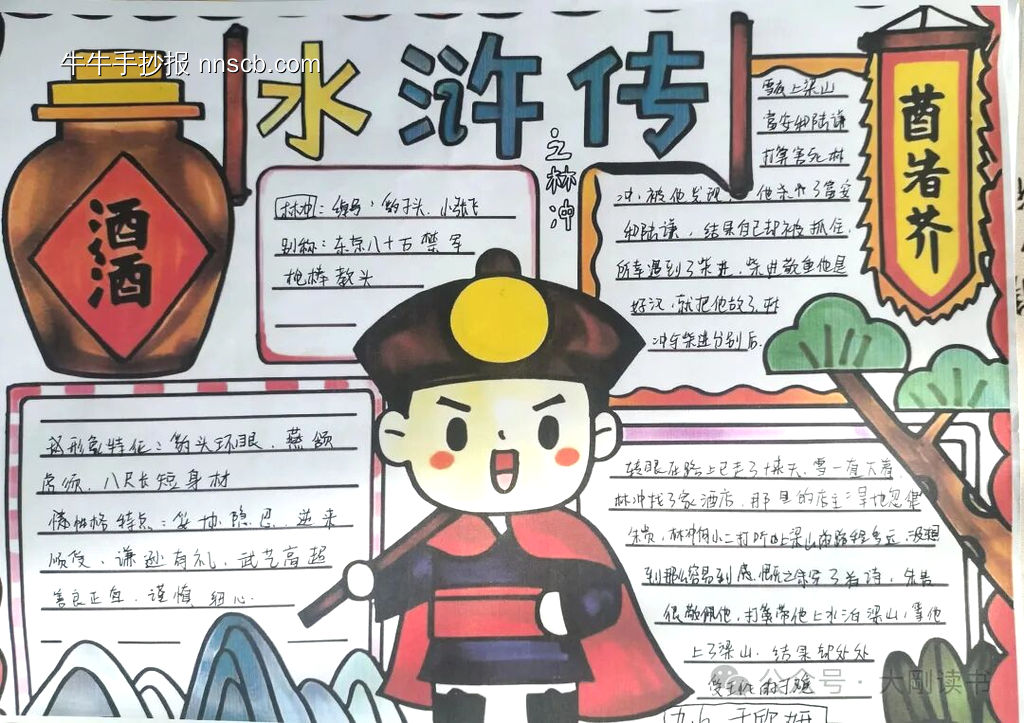 牛牛手抄报 nnscb.com
水浒传
之林冲
酒酒
酋者芥
林冲：绰号：豹子头、小张飞
别称：东京八十万禁军
枪棒教头
雪夜上梁山
富安和陆谦
打算害死林
冲，被他发现，他杀了富安
和陆谦，结果自己却被抓住，
所幸遇到了柴进，柴进敬重他是
好汉，就把他放了，林
冲与柴进分别后，
形象特征：豹头环眼、燕颔
虎须、八尺长短身材
性格特点：安协隐忍、逆来
顺受、谦逊有礼、武艺高超
善良正直、谨慎细心。
转眼在路上已走了十来天，雪一直大着，
林冲找了家酒店，那里的店主
朱贵，林冲向小二打听
到那么容易到 感慨之余写了首诗，朱贵
很敬佩他，打算带他上水泊梁山，等他
上了梁山，结果却处处
受王伦的刁难
公众号·大刚读书